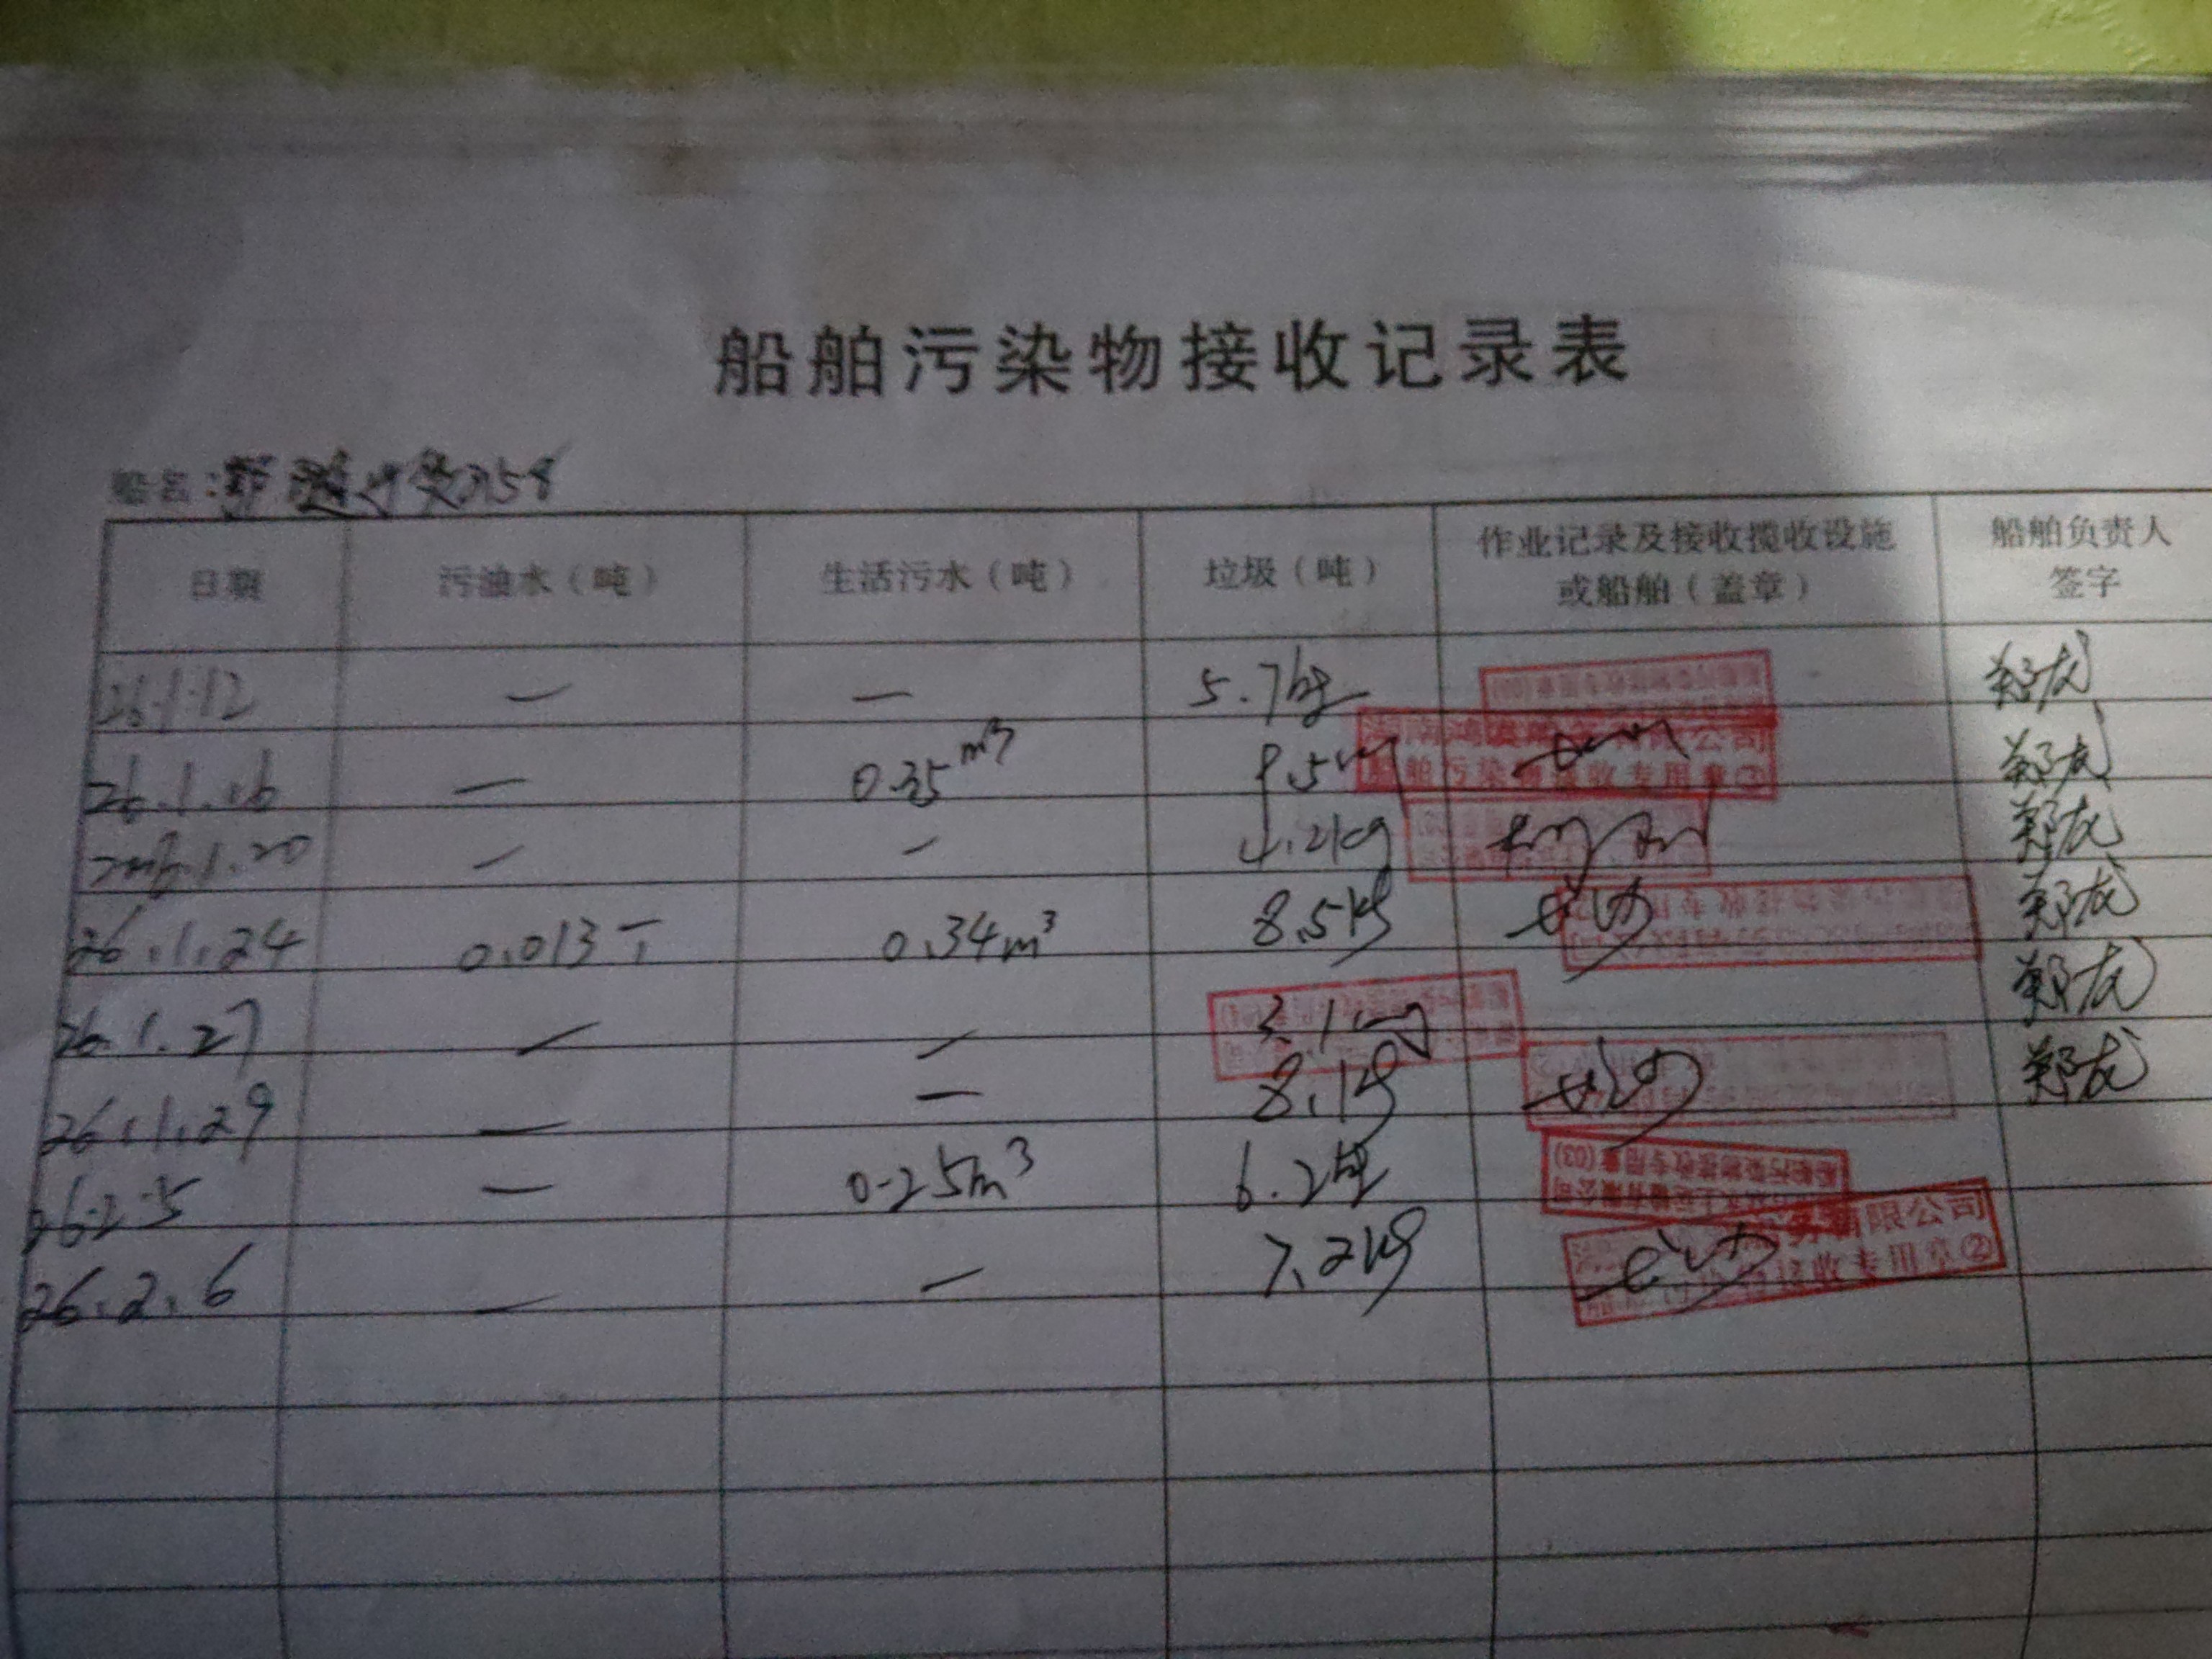 船舶污染物接收记录表
船名：
日期 污油水（吨） 生活污水（吨） 垃圾（吨） 作业记录及接收揽收设施或船舶（盖章） 船舶负责人签字
26.1.12 — — 5.7kg 郑龙
26.1.16 — 0.35m³ 9.5kg 有限公司 船舶污染物接收专用章① 郑龙
2026.1.20 — — 4.2kg 郑龙
26.1.24 0.013T 0.34m³ 8.5kg 郑龙
26.1.27 — — 3.1kg 郑龙
26.1.29 — — 8.1kg 郑龙
26.2.5 — 0.25m³ 6.2kg 船舶污染物接收专用章(03)
26.2.6 — — 7.2kg 务有限公司 接收专用章②